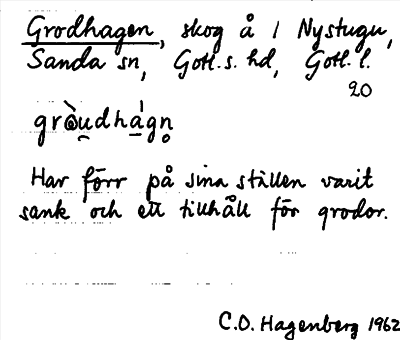 Grodhagen, skog å 1 Nystugu,
Sanda sn, Gotl. s. hd, Gotl. l.
20
grò̯u̯dhág̣n̥
Har förr på sina ställen varit
sank och ett tillhåll för grodor.
C.O. Hagenberg 1962